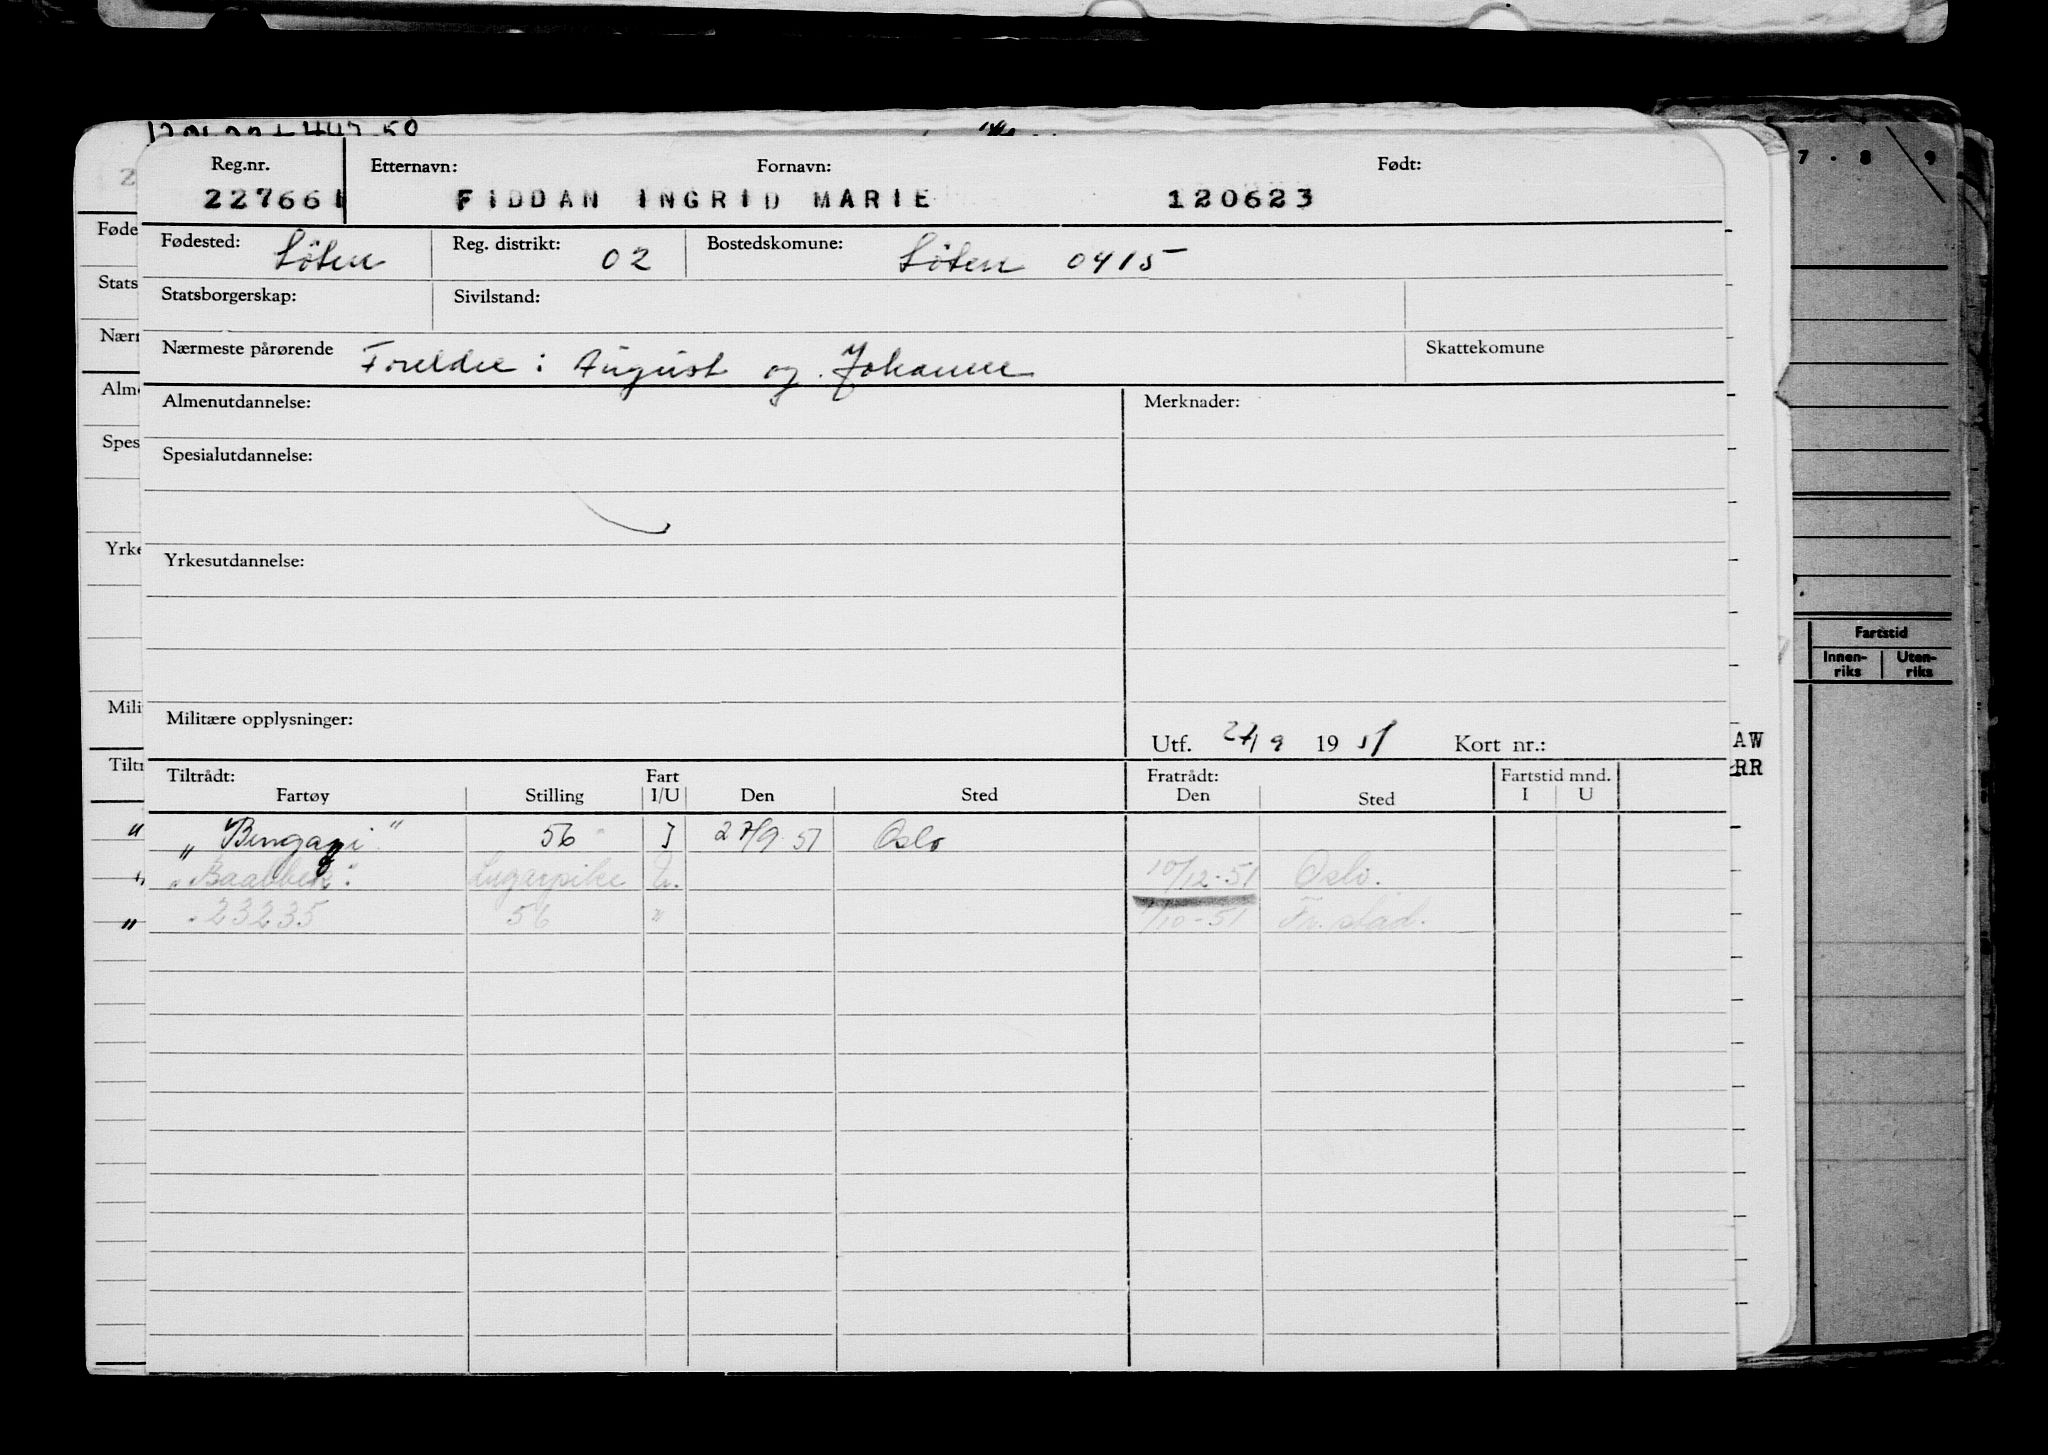 Reg.nr. Etternavn: Fornavn: Født:
227661 FIDDAN INGRID MARIE 120623
Fødested: Løten Reg. distrikt: 02 Bostedskomune: Løten 0415
Statsborgerskap: Sivilstand:
Nærmeste pårørende Foreldre: August og Johanne Skattekomune
Almenutdannelse: Merknader:
Spesialutdannelse:
Yrkesutdannelse:
Militære opplysninger:
Utf. 27/9 1951 Kort nr.:
Tiltrådt: Fart Fratrådt: Fartstid mnd.
Fartøy Stilling I/U Den Sted Den Sted I U
„Bengazi" 56 I 27/9 51 Oslo
„Baalbek". Lugarpike U. 10/12-51 Oslo.
23235 56 " 1/10-51 Fr.stad.
7 8 9
Fartstid
Innen-riks Uten-riks
AW
RR